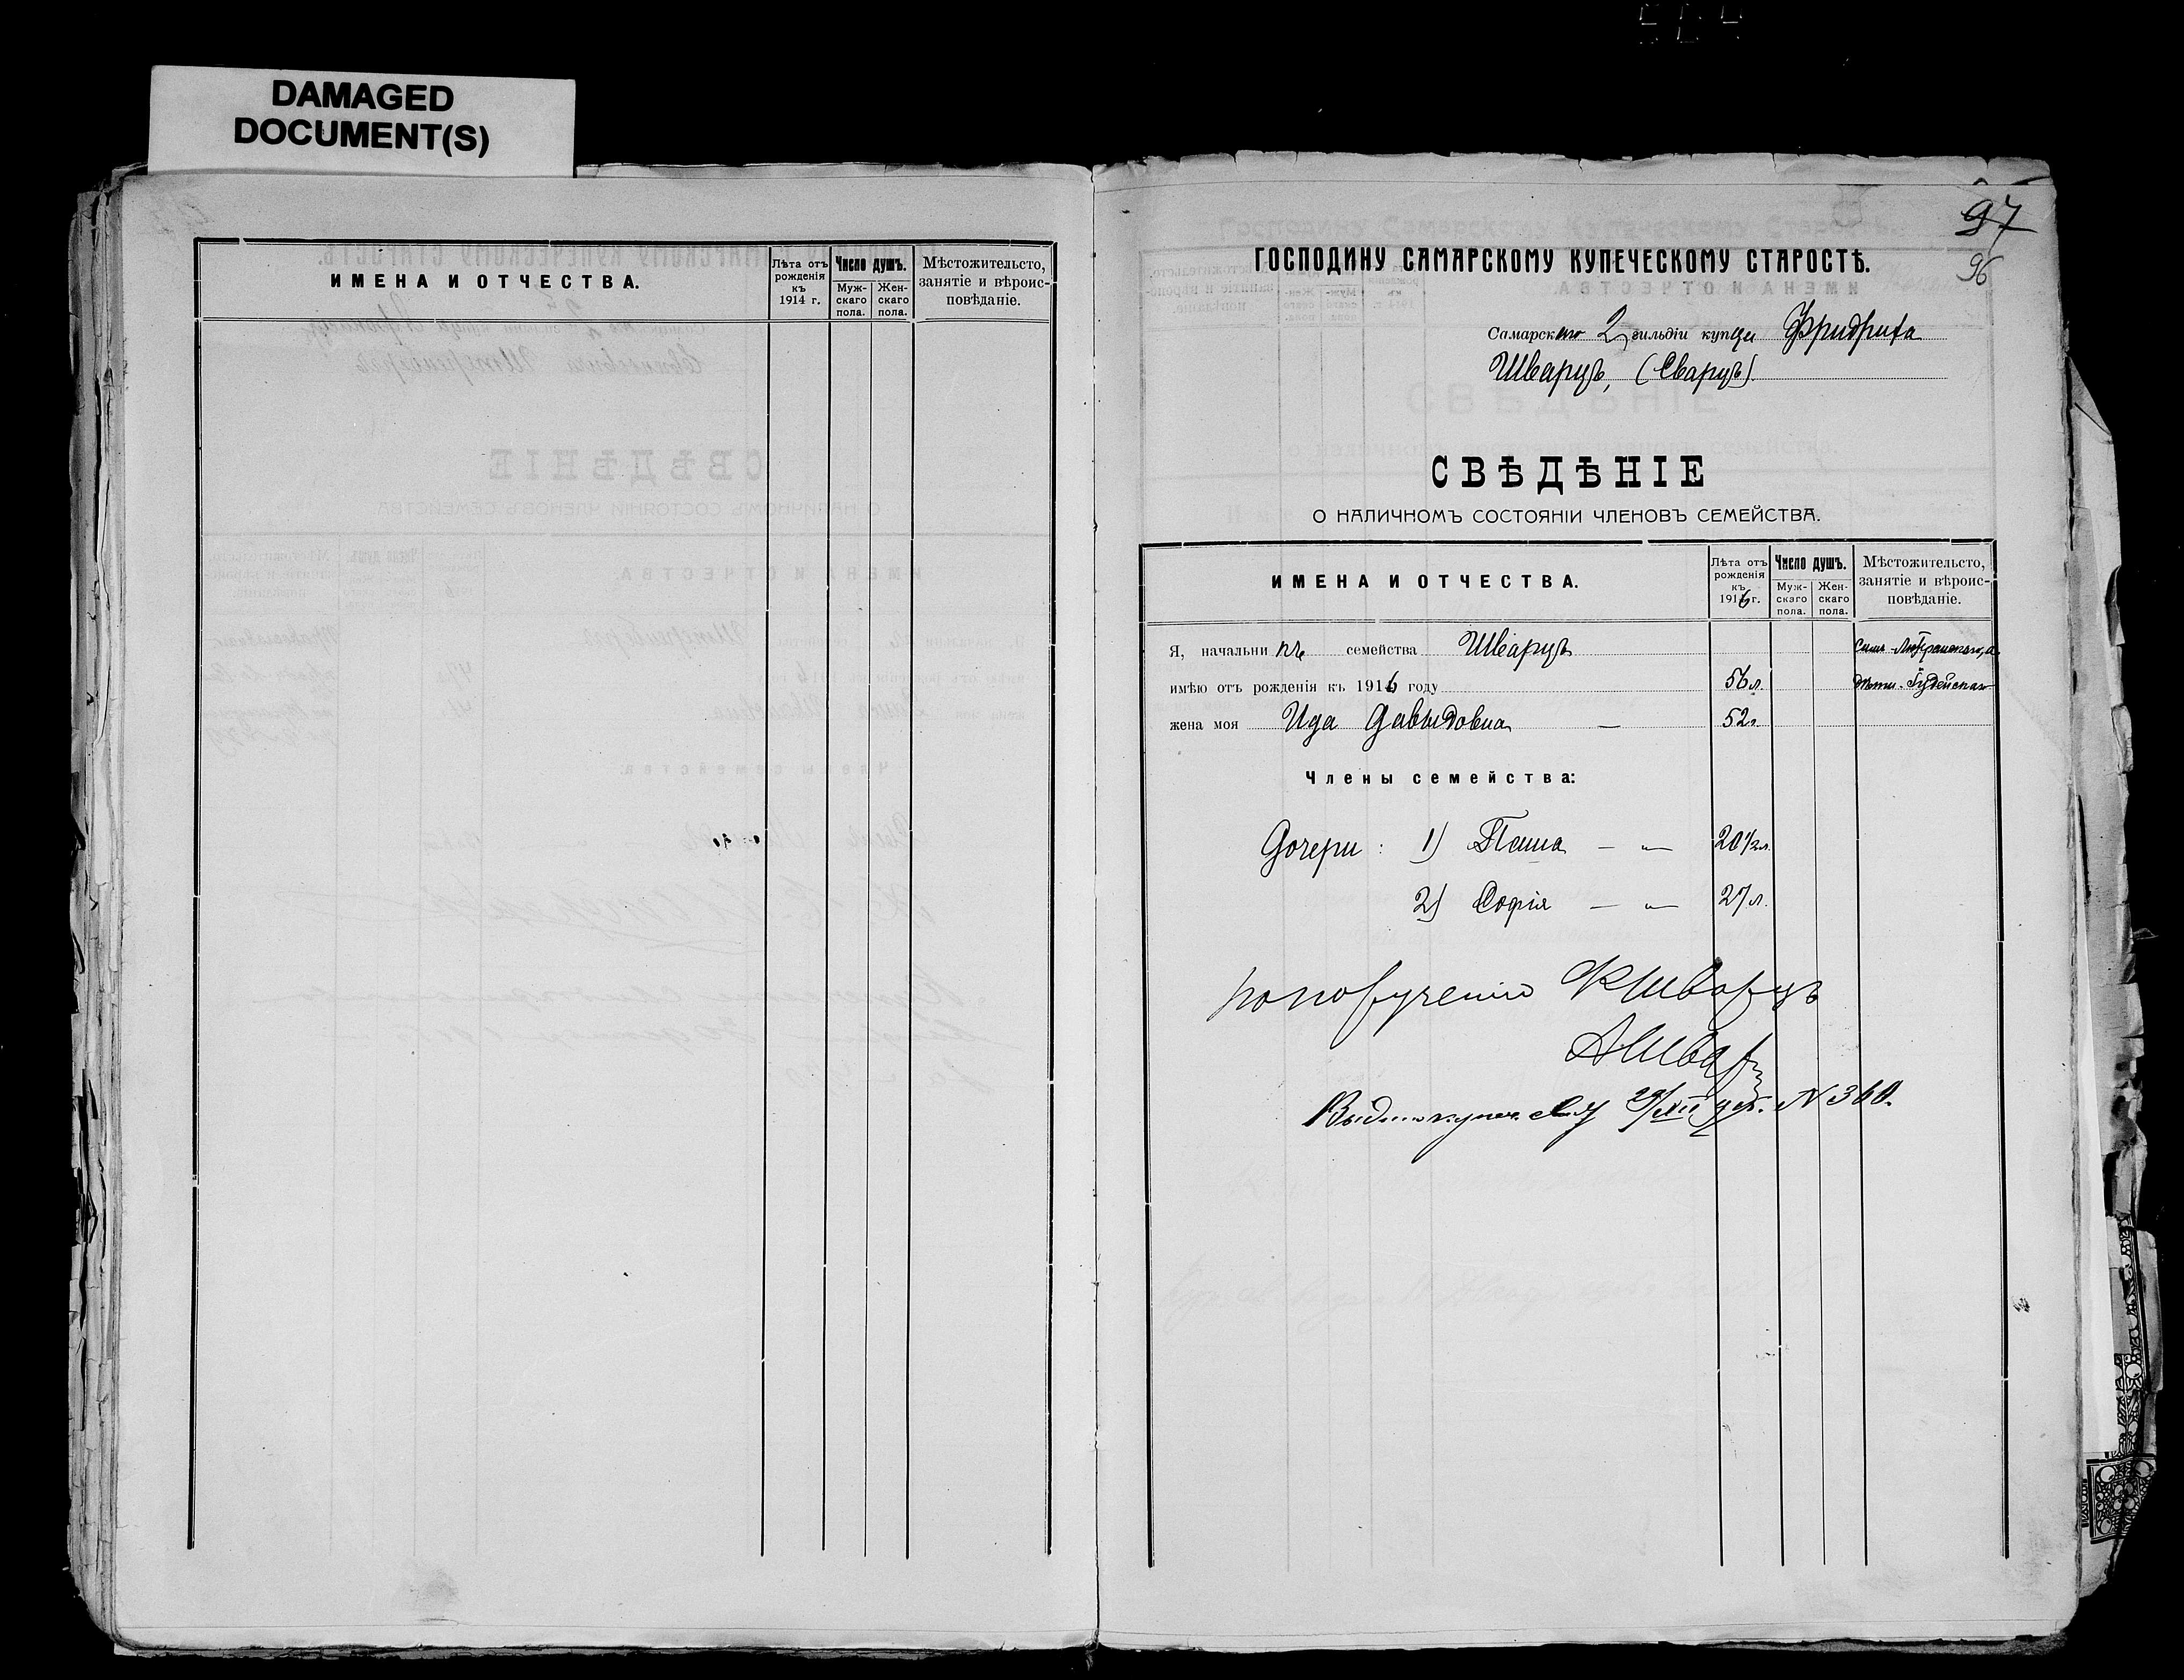 DAMAGED
DOCUMENT(S)
ИМЕНА И ОТЧЕСТВА.
Лѣта отъ рожденія къ 1914 г.
Число душъ.
Муж-скаго пола.
Жен-скаго пола.
Мѣстожительсто, занятіе и вѣроис-повѣданіе.
97
96
ГОСПОДИНУ САМАРСКОМУ КУПЕЧЕСКОМУ СТАРОСТѢ.
Самарскаго 2 гильдіи купца Фридриха
Шварцъ, (Сварцъ).
СВѢДѢНІЕ
О НАЛИЧНОМЪ СОСТОЯНІИ ЧЛЕНОВЪ СЕМЕЙСТВА.
ИМЕНА И ОТЧЕСТВА.
Лѣта отъ рожденія къ 1916 г.
Число душъ.
Муж-скаго пола.
Жен-скаго пола.
Мѣстожительсто, занятіе и вѣроис-повѣданіе.
Я, начальникъ семейства Шварцъ
имѣю отъ рожденія къ 1916 году 56 л. Іудейская
жена моя Ида Давыдовна — 52 г.
Члены семейства:
Дочери: 1) Паша — „— 20 1/2 л.
2) Софія — „— 27 л.
по порученію Ф Шварцъ
А Шварц
N 360.